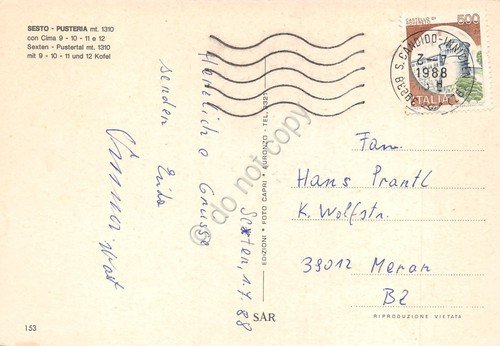 SESTO - PUSTERIA mt. 1310
con Cima 9 - 10 - 11 e 12
Sexten - Pustertal mt. 1310
mit 9 - 10 - 11 und 12 Kofel
500
ITALIA
S. CANDIDO-INN
1988
Sexten, 1.7.88
Herzliche Grüsse
senden
Fam.
Hans Prantl
K. Wolfstr.
39012 Meran
BZ
EDIZIONI * FOTO CAPRI * AURONZO - TEL.
SAR
RIPRODUZIONE VIETATA
153
© do not copy